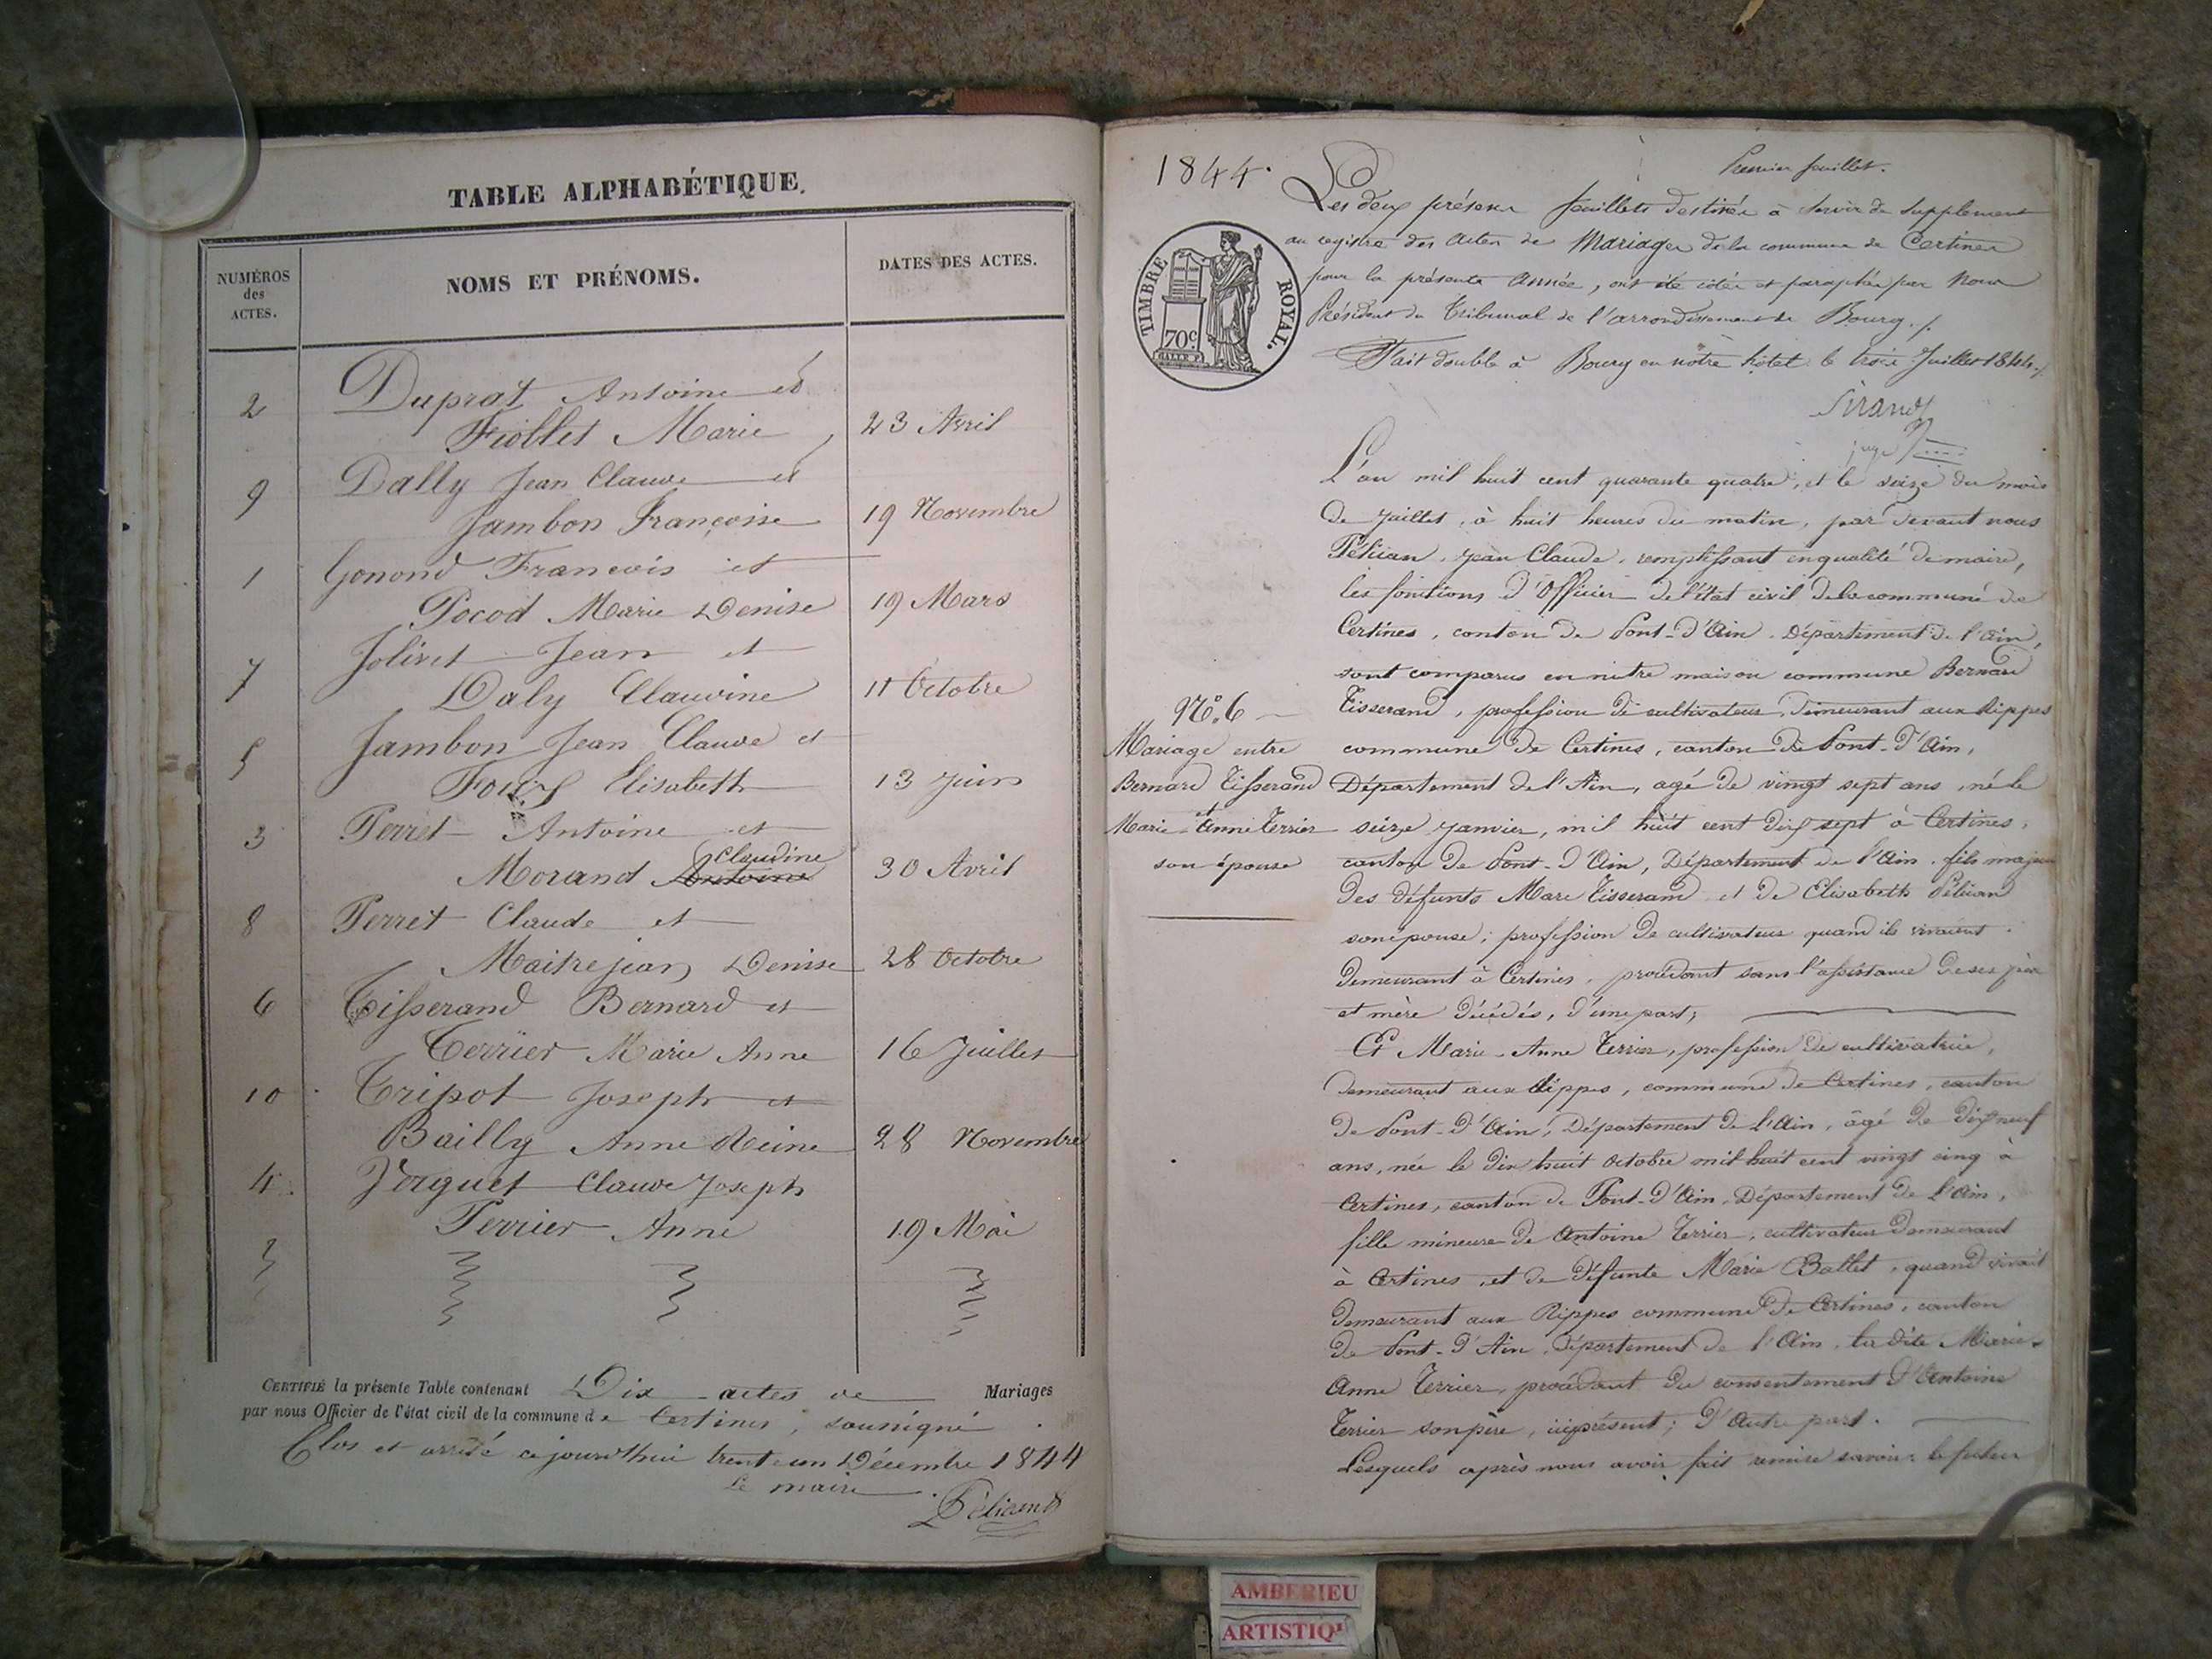 TABLE ALPHABÉTIQUE.
NUMÉROS des ACTES.
NOMS ET PRÉNOMS.
DATES DES ACTES.
2 Duprat Antoine et
Fiollet Marie 23 Avril
9 Dally Jean Claude et
Jambon Françoise 19 Novembre
1 Gonond Francois et
Pocod Marie Denise 19 Mars
7 Jolivet Jean et
Daly Claudine 11 Octobre
5 Jambon Jean Claude et
Elisabeth 13 Juin
3 Perret Antoine et
Claudine
Morand Antoine 30 Avril
8 Perret Claude et
Maitrejean Denise 28 Octobre
6 Tisserand Bernard et
Terrier Marie Anne 16 Juillet
10 Tripot Joseph et
Bailly Anne Reine 28 Novembre
4 Claude Joseph
Perrier Anne 19 Mai
CERTIFIÉ la présente Table contenant Dix actes de Mariages
par nous Officier de l'état civil de la commune de Certines, soussigné
Clos et arrêté ce jourd'hui trente un Décembre 1844
Le maire
Péliand
Premier feuillet.
1844.
Les deux présens feuillets destinés à servir de supplement
au registre des actes de Mariages de la commune de Certines
pour la présente année, ont été cotés et paraphés par Nous
Président du Tribunal de l'arrondissement de Bourg./.
Fait double à Bourg en notre hôtel le trois Juillet 1844./.
TIMBRE ROYAL.
70c.
Sirand
juge
L'an mil huit cent quarante quatre, et le seize du mois
de juillet, à huit heures du matin, par devant nous
Jean Claude, remplissant en qualité de maire,
les fonctions d'Officier de l'état civil de la commune de
Certines, canton de Pont-d'Ain, Département de l'Ain,
sont comparus en notre maison commune Bernard
Tisserand, profession de cultivateur, demeurant aux Rippes
commune de Certines, canton de Pont-d'Ain,
Département de l'Ain, agé de vingt sept ans, né le
seize janvier, mil huit cent dix sept à Certines,
canton de Pont-d'Ain, Département de l'Ain, fils majeur
des défunts Marc Tisserand et de Elisabeth Pélican
son épouse, profession de cultivateurs quand ils vivaient
demeurant à Certines, procédant sans l'assistance de ses père
et mère décédés, d'une part;
Et Marie-Anne Terrier, profession de cultivatrice,
demeurant aux Rippes, commune de Certines, canton
de Pont-d'Ain, Département de l'Ain, âgé de dix neuf
ans, née le dix huit octobre mil huit cent vingt cinq à
Certines, canton de Pont-d'Ain, Département de l'Ain,
fille mineure de Antoine Terrier, cultivateur demeurant
à Certines, et de défunte Marie Ballet, quand vivait
demeurant aux Rippes commune de Certines, canton
de Pont-d'Ain, Département de l'Ain, la dite Marie-
Anne Terrier, procédant du consentement d'Antoine
Terrier son père, ici présent; d'autre part.
Lesquels après nous avoir fait remise savoir: le futur
No. 6
Mariage entre
Bernard Tisserand
et
Marie-Anne Terrier
son épouse
AMBERIEU
ARTISTIQ